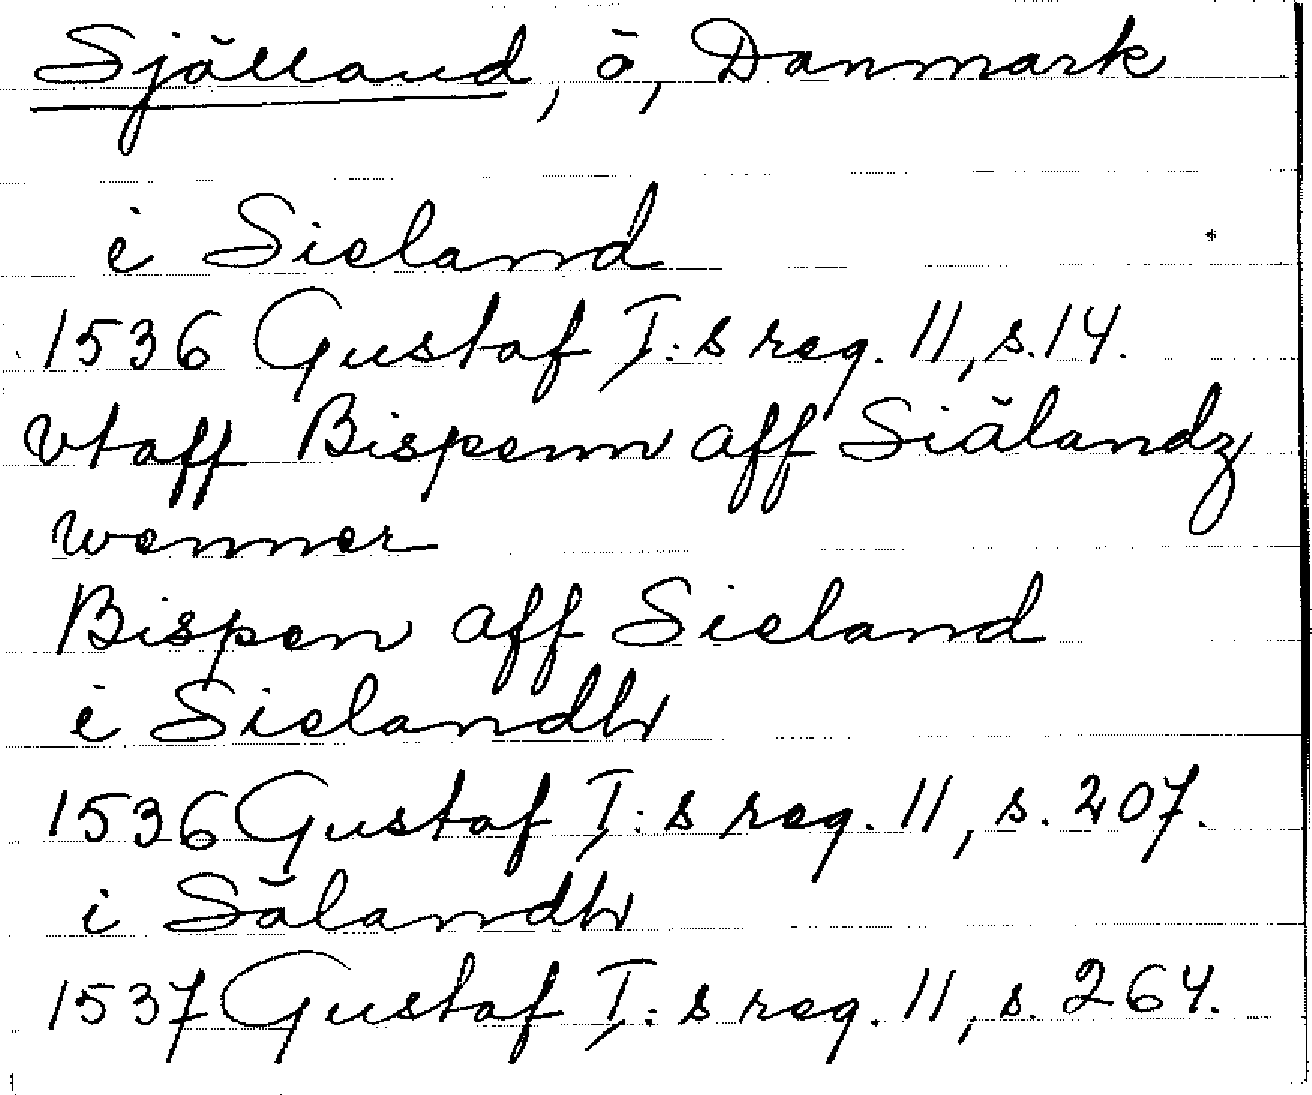 Själland, ö, Danmark
i Sieland
1536 Gustaf I:s reg. 11, s. 14.
Vtaff Bispenn aff Siälandz
wenner
Bispen aff Sieland
i Sielandh
1536 Gustaf I:s reg. 11, s. 207.
i Sälandh
1537 Gustaf I:s reg. 11, s. 264.